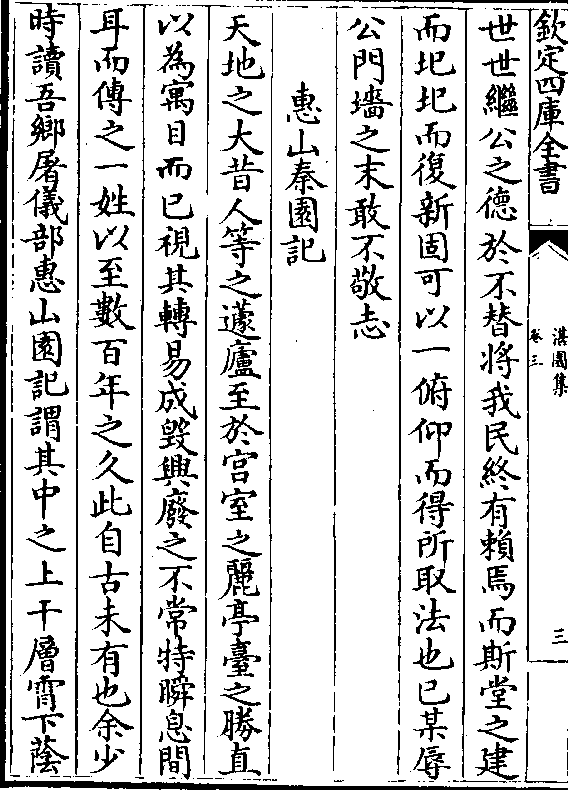 欽定四庫全書
湛園集
卷三
三
世世繼公之德於不替將我民終有賴焉而斯堂之建
而圯圯而復新固可以一俯仰而得所取法也已某辱
公門墻之末敢不敬志
惠山秦園記
天地之大昔人等之蘧廬至於宫室之麗亭臺之勝直
以為寓目而已視其轉易成毀興廢之不常特瞬息間
耳而傳之一姓以至數百年之久此自古未有也余少
時讀吾鄉屠儀部惠山園記謂其中之上干層霄下蔭